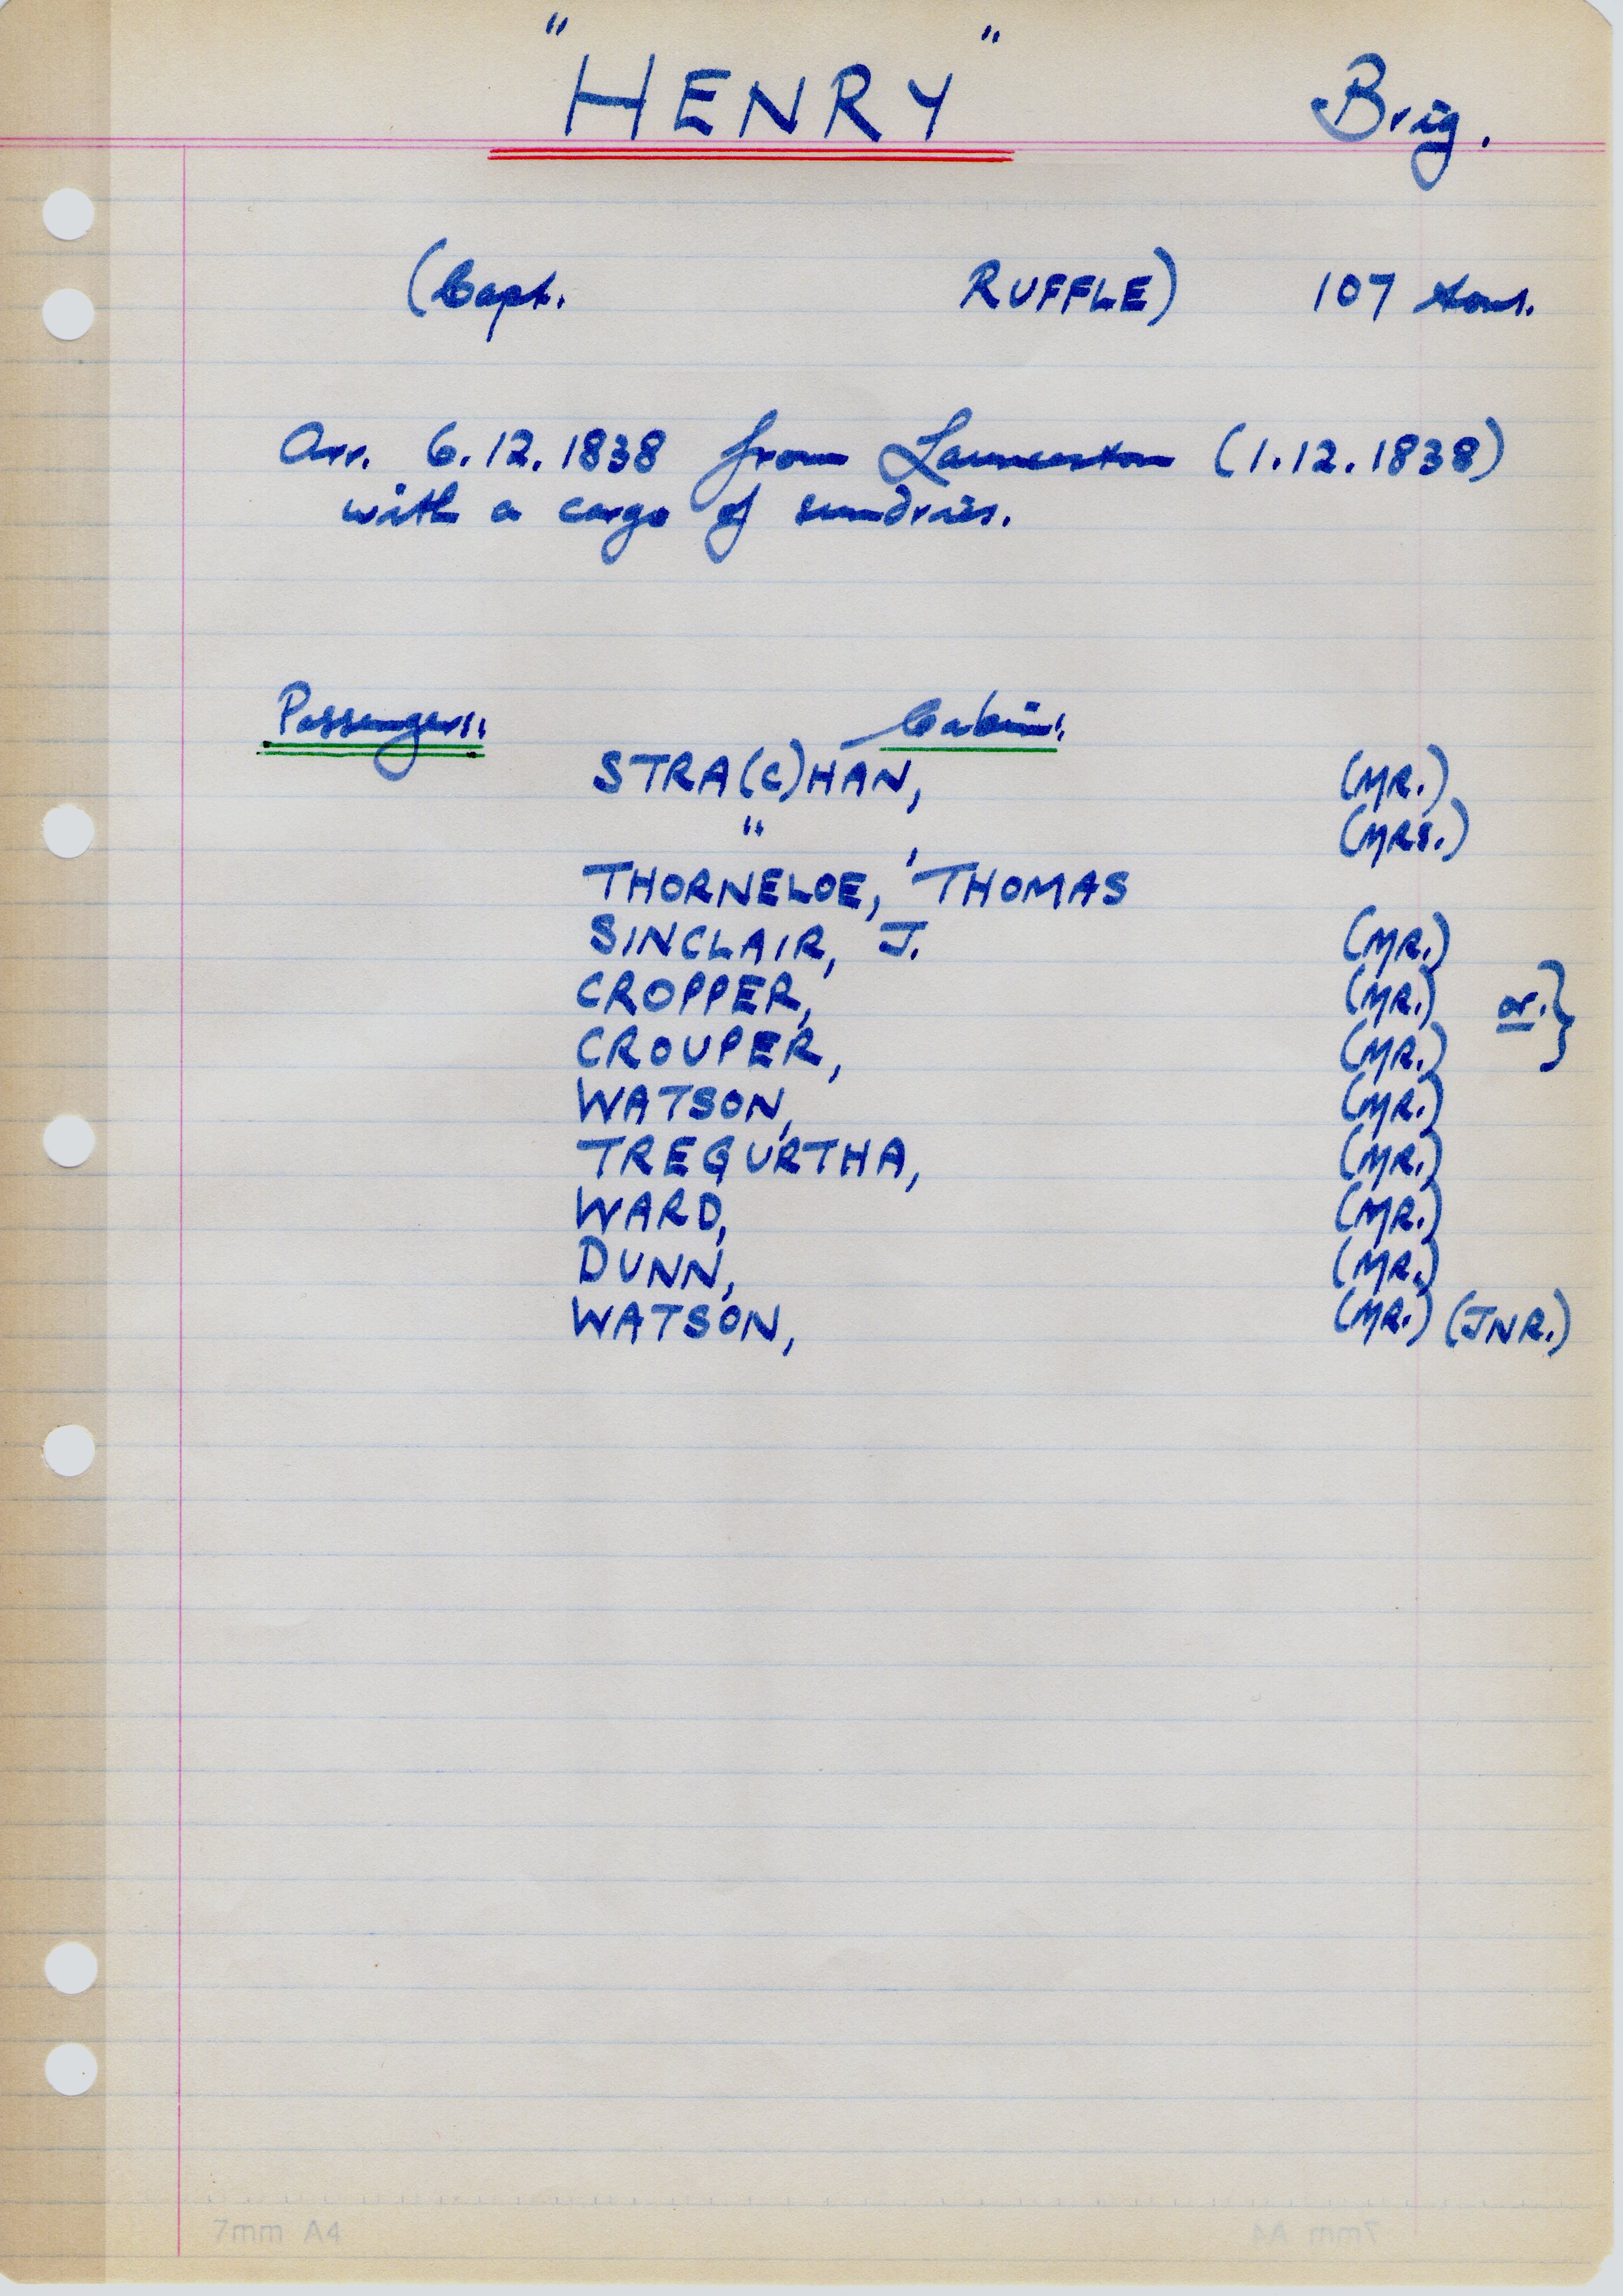 "HENRY" Brig.
(Capt. RUFFLE) 107 tons.
Arr. 6.12.1838 from Launceston (1.12.1838)
with a cargo of sundries.
Passengers:. Cabin:.
STRA(C)HAN, (MR.)
" , (MRS.)
THORNELOE, THOMAS
SINCLAIR, J. (MR.)
CROPPER, (MR.) or.}
CROUPER, (MR.)
WATSON, (MR.)
TREGURTHA, (MR.)
WARD, (MR.)
DUNN, (MR.)
WATSON, (MR.) (JNR.)
7mm A4